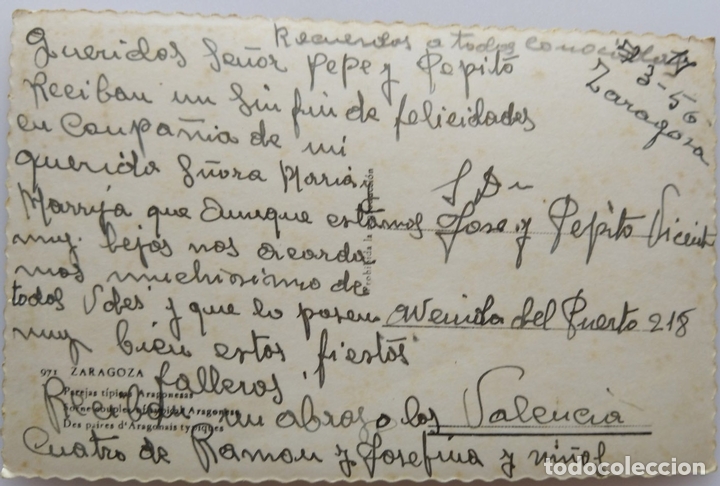 Recuerdos a todos conocidos
Queridos Señor Pepe y Pepito
3-56
Zaragoza
Reciban un Sin fin de felicidades
en Compañia de mi
querida Señora Maria y
Marruja que Aunque estamos
muy lejos nos acorda
mos muchisimo de
todos Vdes y que lo pasen
muy bien estas fiestas
falleras
Reciban un abraso a los
Cuatro de Ramon y Josefina y niños
Jose y Pepito Vicent
Avenida del Puerto 218
Valencia
971 ZARAGOZA
Parejas típicas Aragonesas
Some couples of typical Aragonese
Des paires d'Aragonais typiques
Prohibida la reproducción
todocoleccion.net